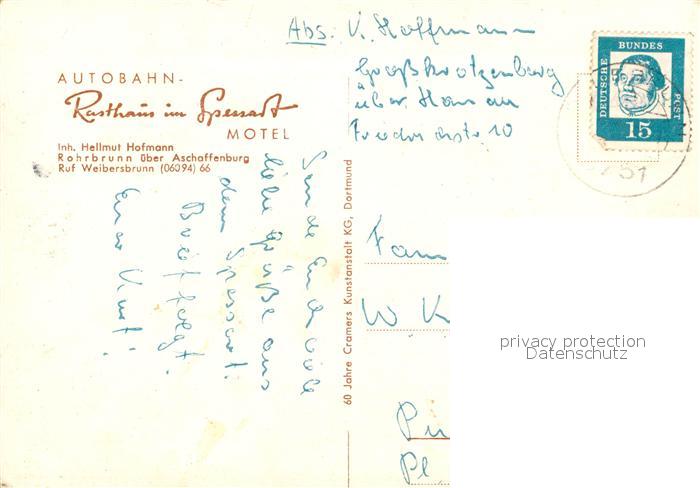 Abs: K. Hoffmann
Großkrotzenburg
über Hanau
10
AUTOBAHN-
Rasthaus im Spessart
MOTEL
Inh. Hellmut Hofmann
Rohrbrunn über Aschaffenburg
Ruf Weibersbrunn (06094) 66
Sende Euch viele
liebe Grüße aus
dem Spessart.
Brief folgt.
Euer Kurt!
60 Jahre Cramers Kunstanstalt KG, Dortmund
DEUTSCHE
BUNDES
POST
15
8751
Fam
W K
Pl
privacy protection
Datenschutz